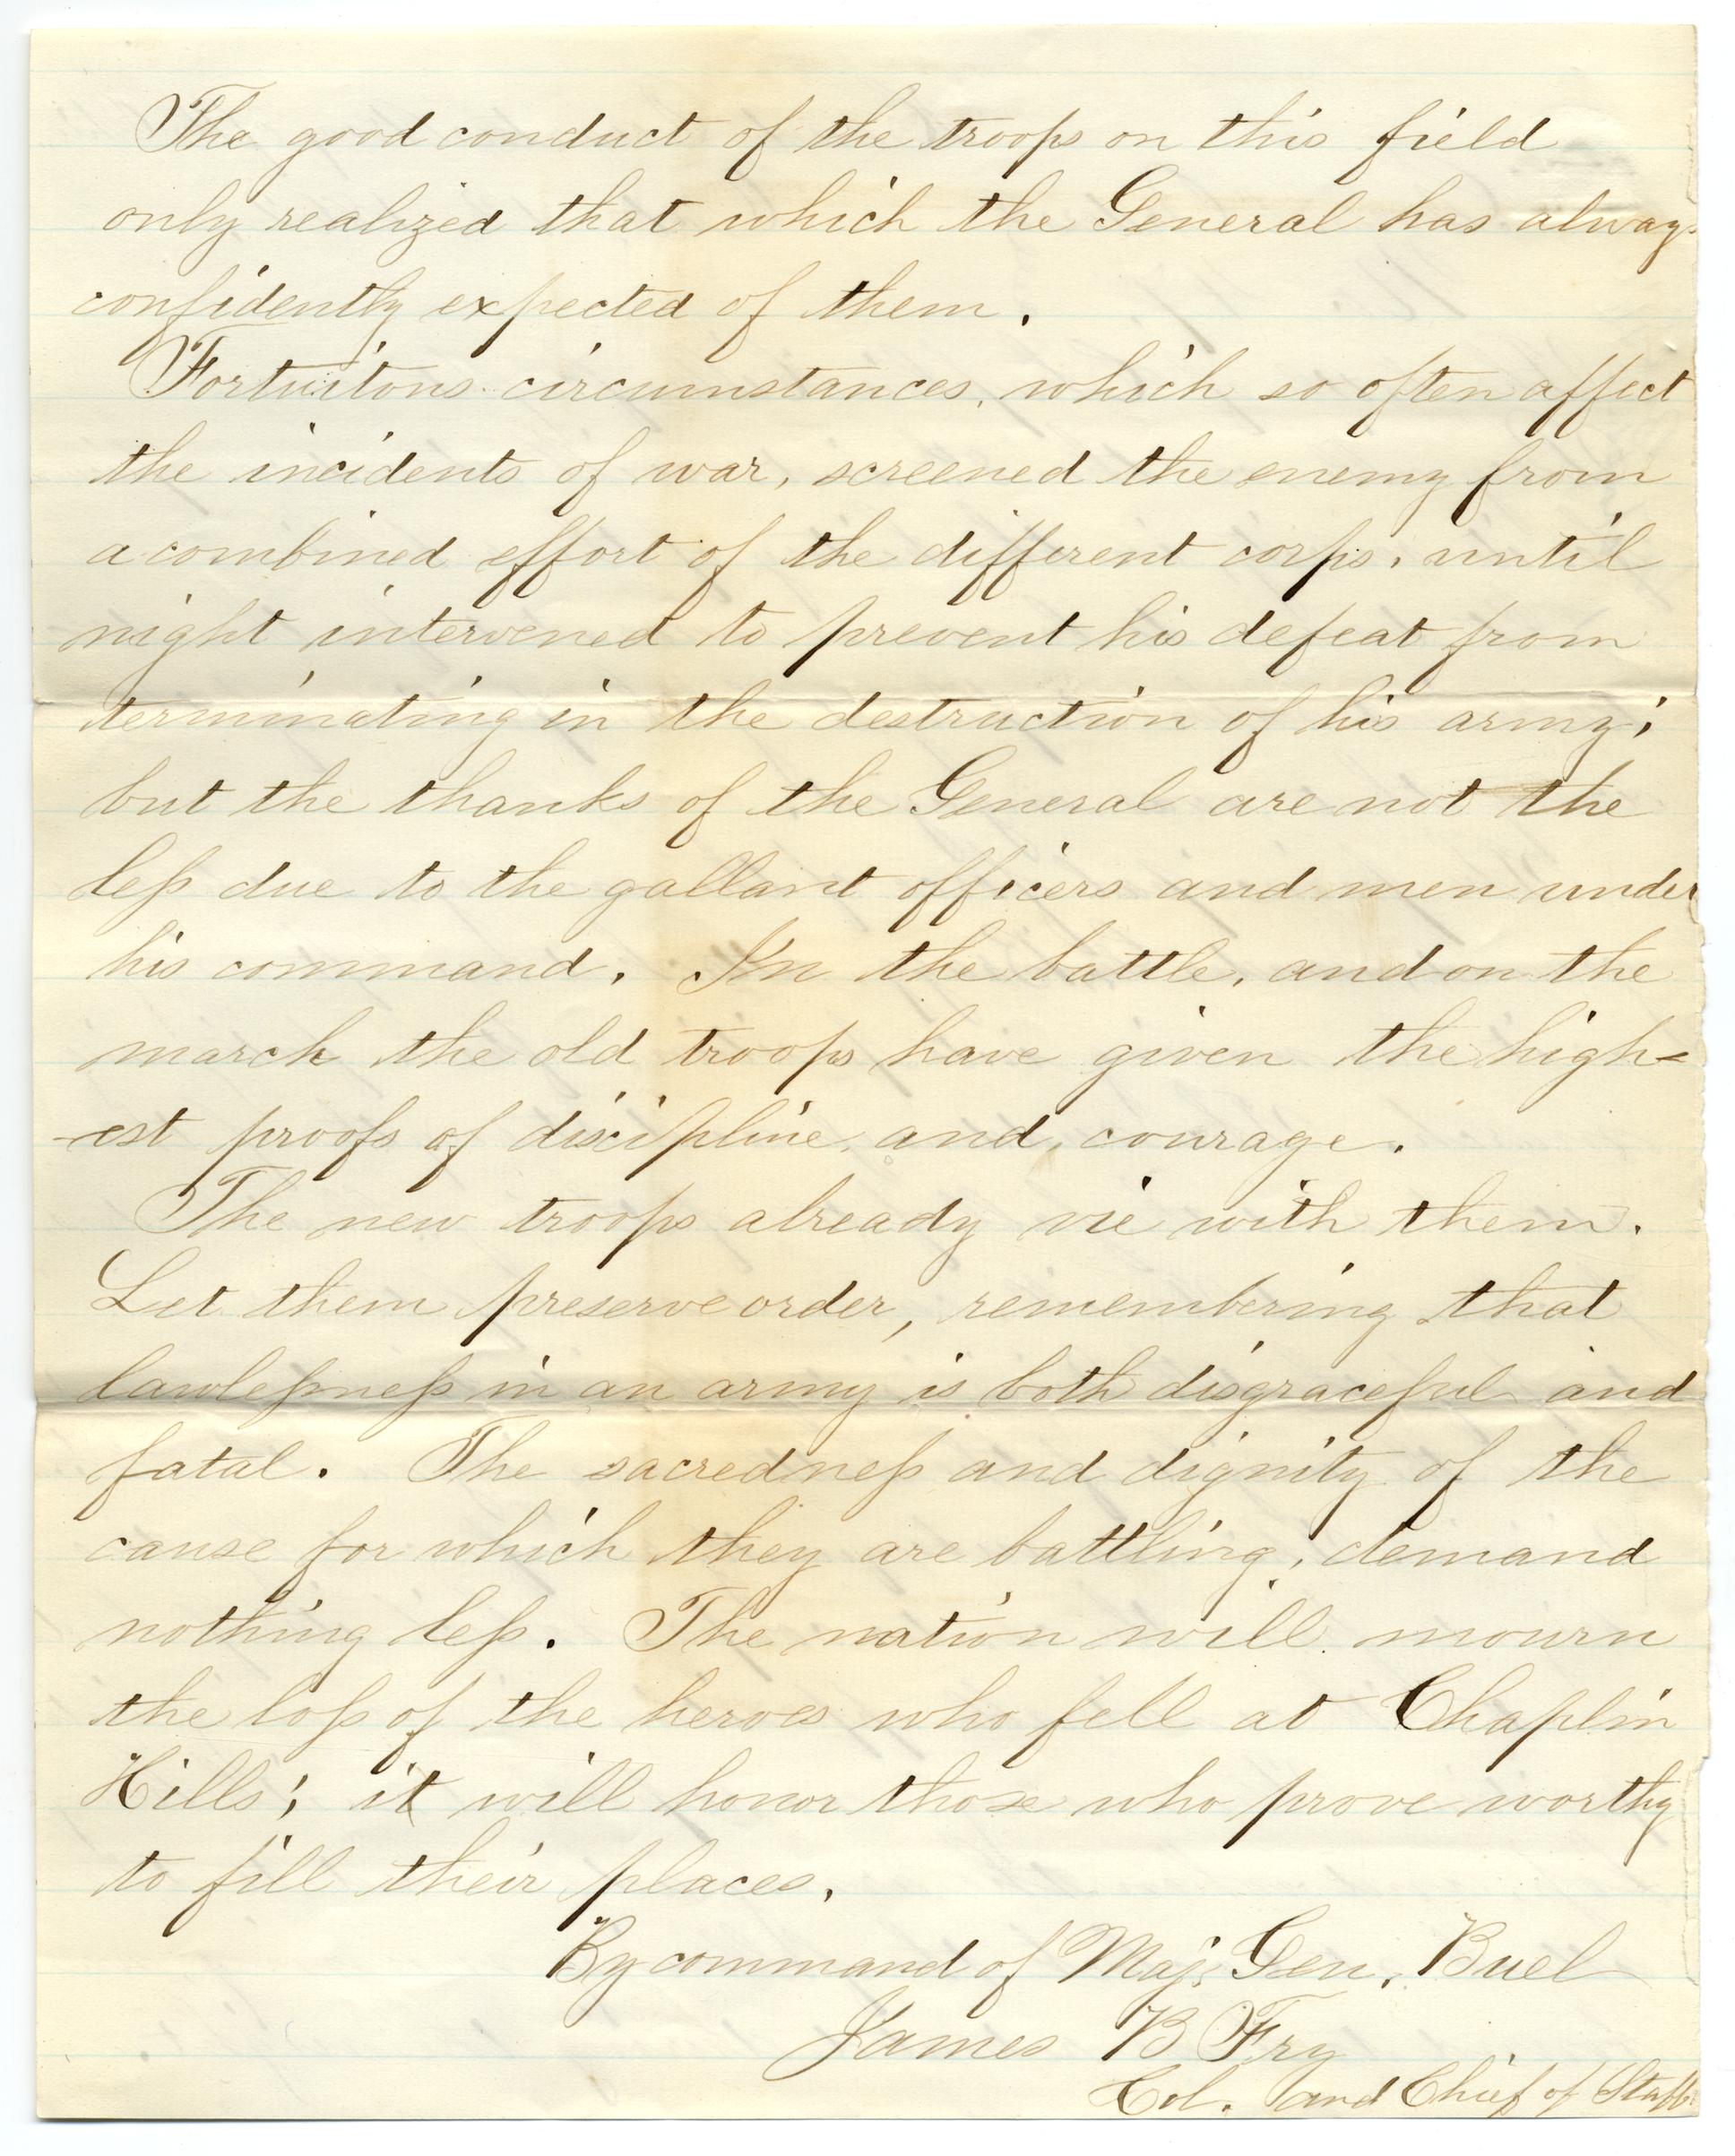 The good conduct of the troops on this field
only realized that which the General has always
confidently expected of them.
Fortuitous circumstances, which so often affect
the incidents of war, screened the enemy from
a combined effort of the different corps, until
night intervened to prevent his defeat from
terminating in the destruction of his army;
but the thanks of the General are not the
less due to the gallant officers and men under
his command. In the battle, and on the
march the old troops have given the high-
-est proofs of discipline, and, courage.
The new troops already vie with them.
Let them preserve order, remembering that
lawlessness in an army is both disgraceful and
fatal. The sacredness and dignity of the
cause for which they are battling, demand
nothing less. The nation will mourn
the loss of the heroes who fell at Chaplin
Hills; it will honor those who prove worthy
to fill their places.
By command of Maj. Gen. Buel
James B Fry
Col. and Chief of Staff